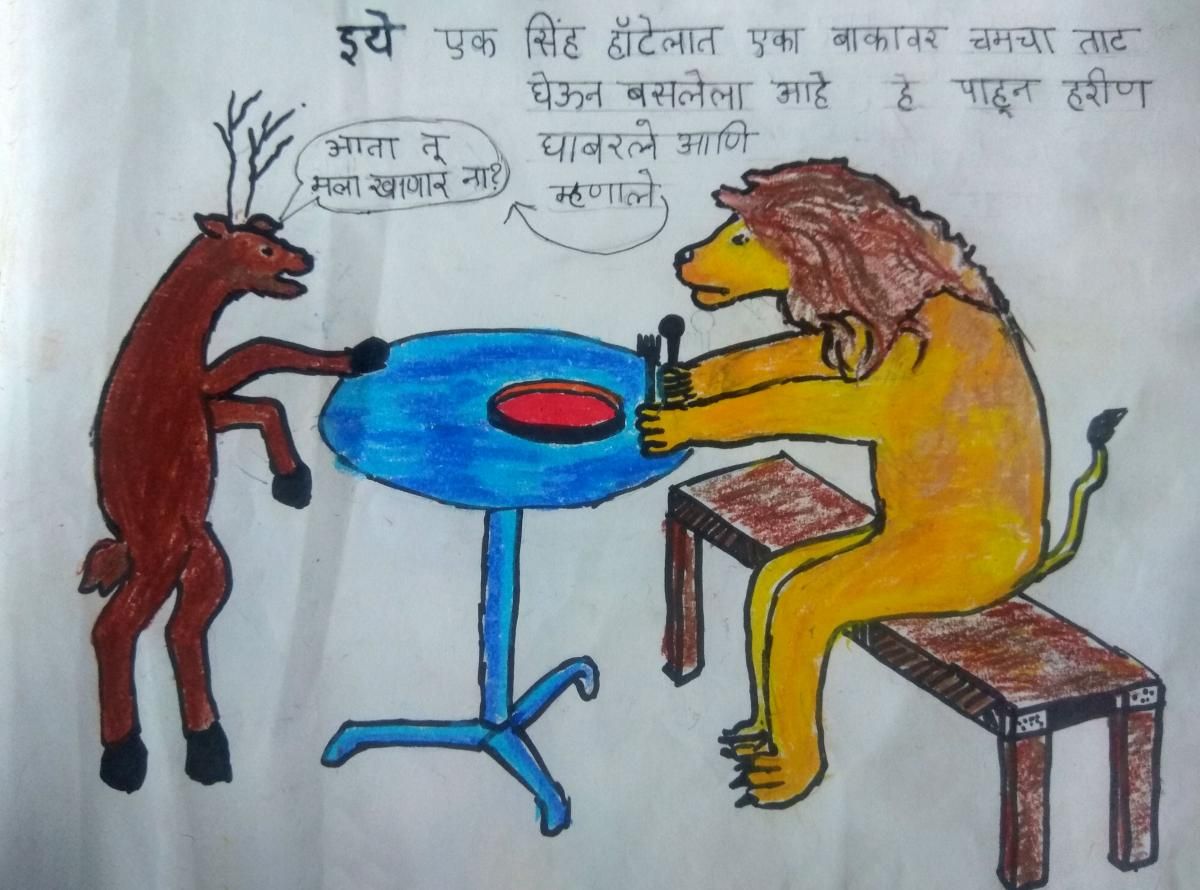 इथे एक सिंह हॉटेलात एका बाकावर चमचा ताट
घेऊन बसलेला आहे हे पाहून हरीण
घाबरले आणि
म्हणाले
आता तू
मला खाणार ना?